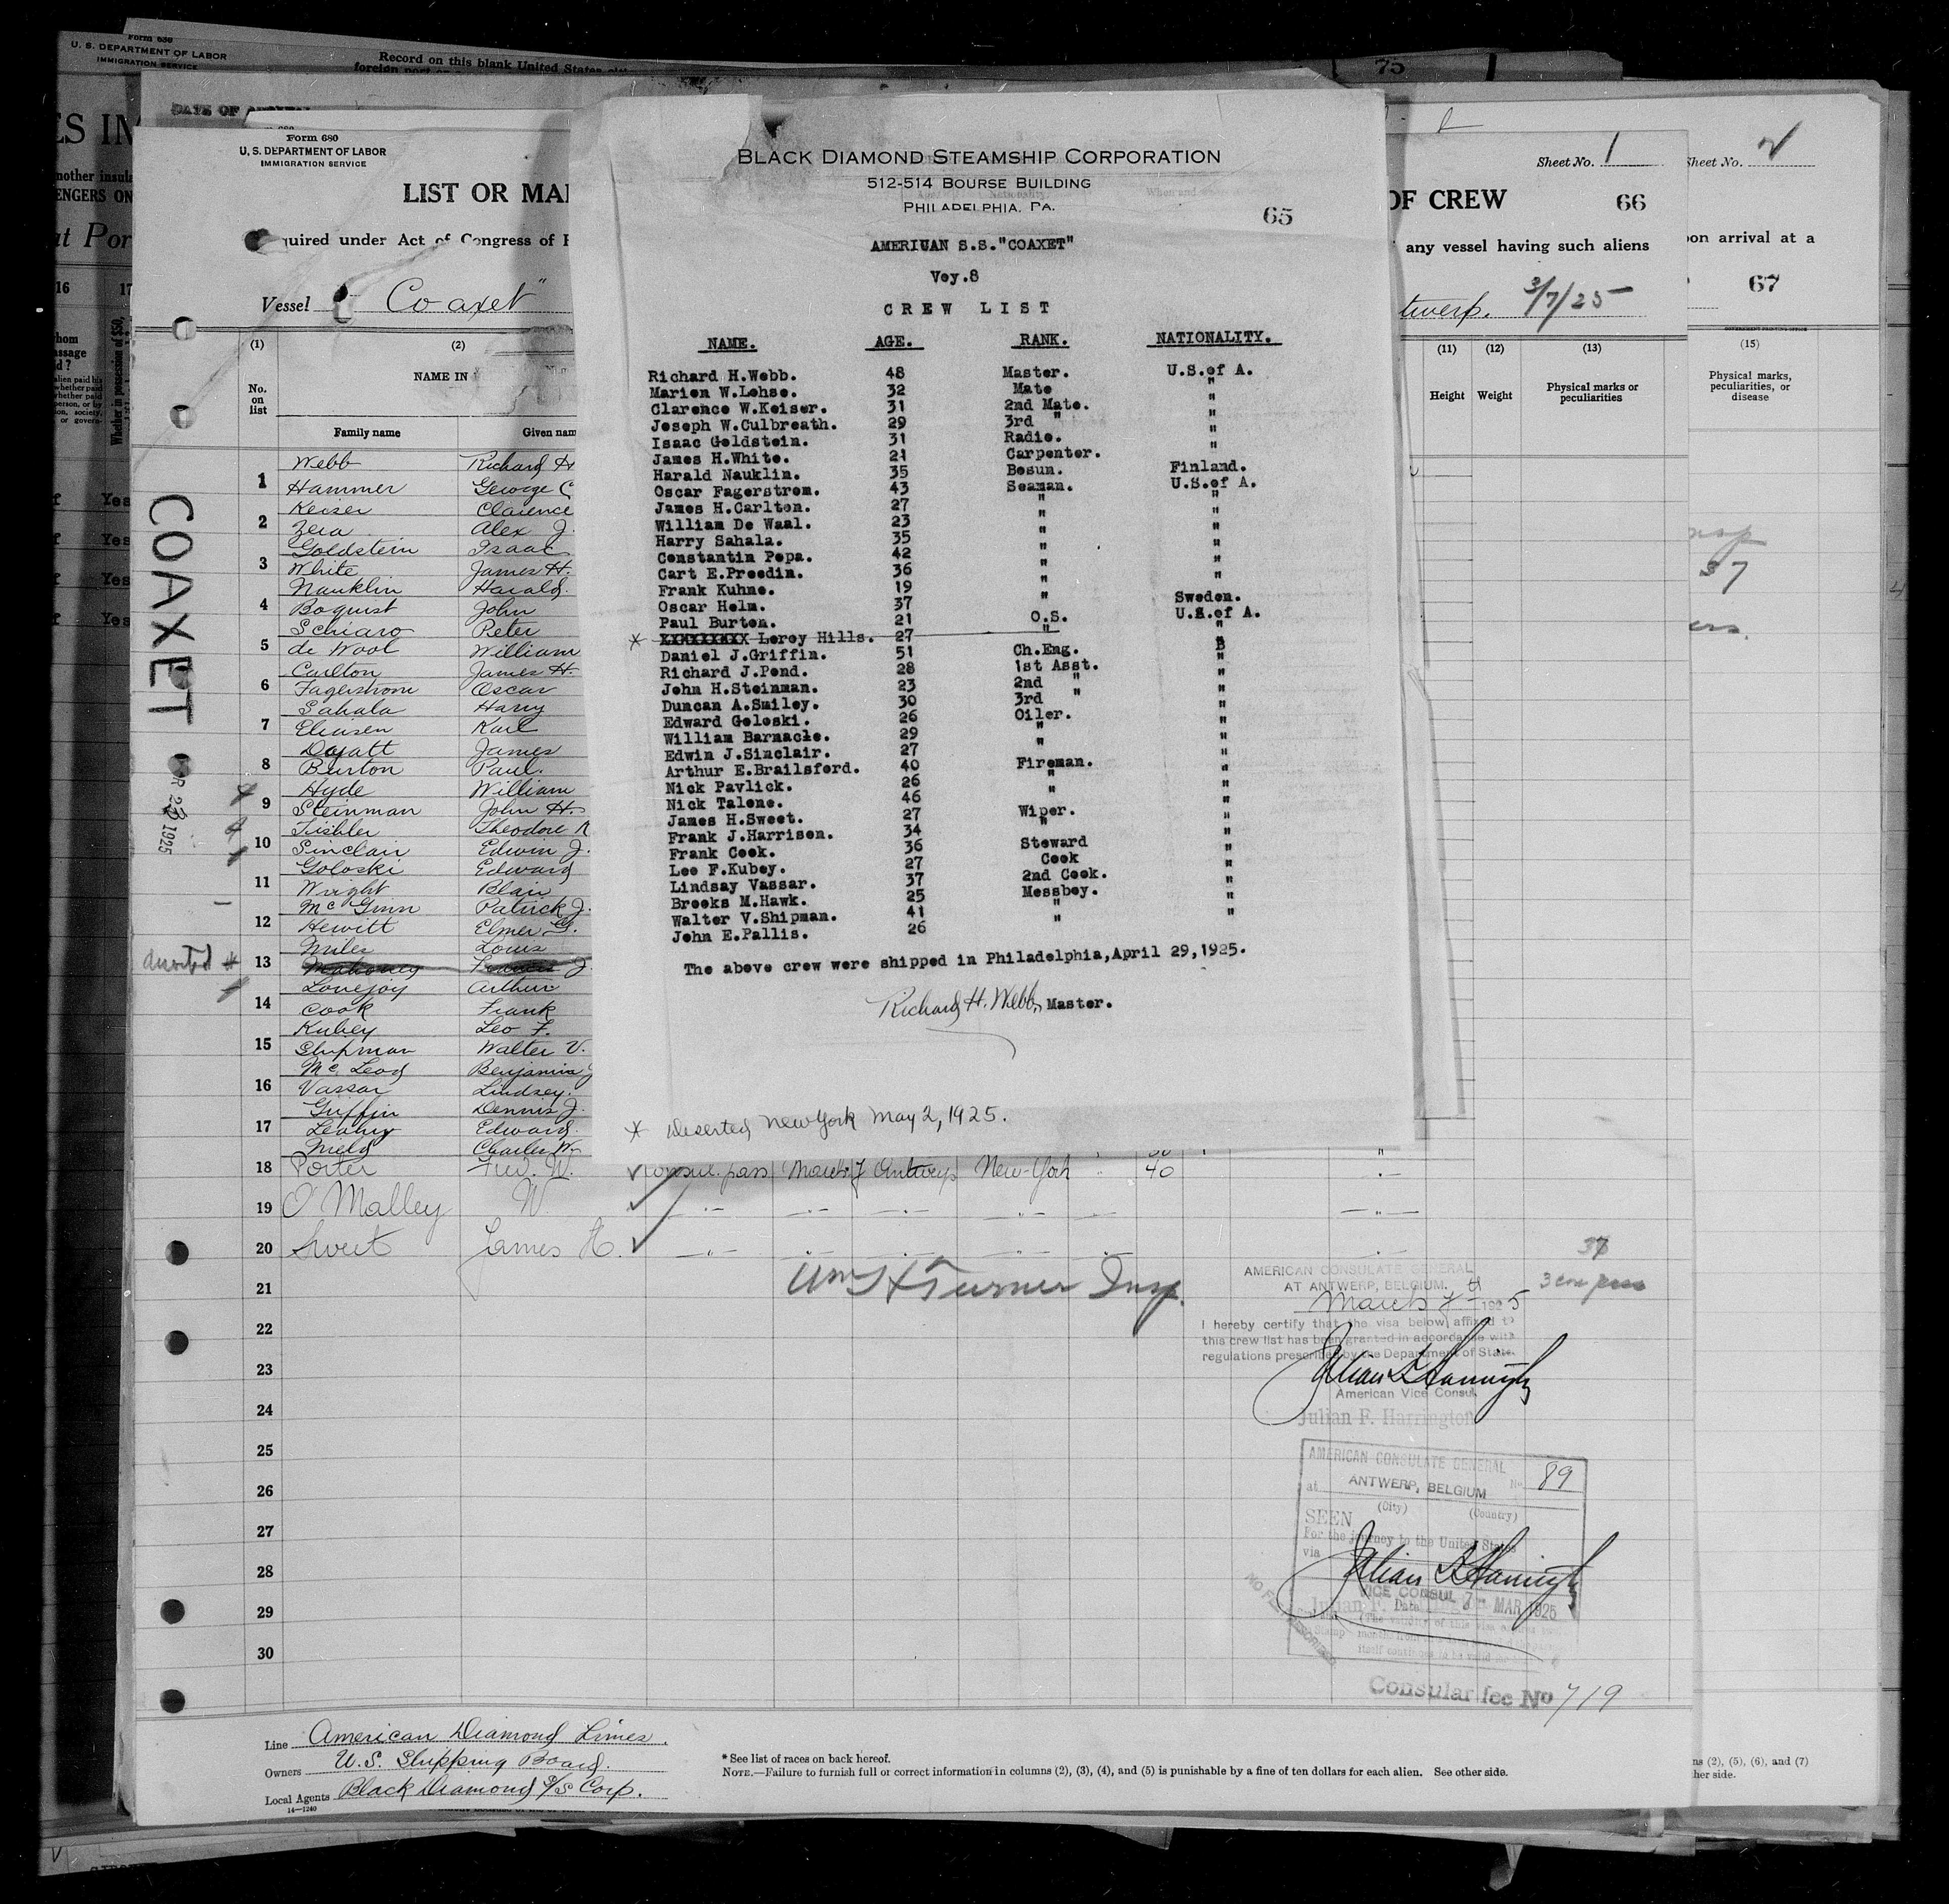 Form 630
U. S. DEPARTMENT OF LABOR
IMMIGRATION SERVICE
Record on this blank United States
foreign port
75
DATE OF
Form 680
U. S. DEPARTMENT OF LABOR
IMMIGRATION SERVICE
LIST OR MAN
quired under Act of Congress of F
Vessel "Coaxet"
(1) (2)
No. on list
NAME IN
Family name Given nam
Webb Richard H
1 Hammer George C
Keiser Clarence
2 Zera Alex J.
Goldstein Isaac
3 White James H.
Nauklin Harald.
4 Boquist John
Schiaro Peter
5 de Wool William
Carlton James H.
6 Fagerstrom Oscar
Sahala Harry
7 Eliasen Karl
Doyatt James
8 Burton Paul.
Hyde William
9 Steinman John H.
Tishler Theodore R
10 Sinclair Edwin J.
Goloski Edward
11 Wright Blair
McGinn Patrick J.
12 Hewitt Elmer G.
Niles Louis
deserted * 13 Mahoney Francis J.
Lovejoy Arthur
14 Cook Frank
Kubey Leo F.
15 Shipman Walter V.
McLeod Benjamin J
16 Vassar Lindsey.
Griffin Dennis J.
17 Leahy Edward.
Nield Charles W.
18 Porter Fred. W. Consul. pass March 7 Antwerp New-York " 40
19 O'Malley W.
20 Sweet James H.
21
22
23
24
25
26
27
28
29
30
COAXET
1925
BLACK DIAMOND STEAMSHIP CORPORATION
512-514 BOURSE BUILDING
PHILADELPHIA, PA.
65
AMERIUAN S.S."COAXET"
Voy.8
CREW LIST
NAME. AGE. RANK. NATIONALITY.
Richard H.Webb. 48 Master. U.S.of A.
Marion W.Lohse. 32 Mate "
Clarence W.Keiser. 31 2nd Mate. "
Joseph W.Culbreath. 29 3rd " "
Isaac Goldstein. 31 Radio. "
James H.White. 21 Carpenter. "
Harald Nauklin. 35 Bosun. Finland.
Oscar Fagerstrom. 43 Seaman. U.S.of A.
James H.Carlton. 27 " "
William De Waal. 23 " "
Harry Sahala. 35 " "
Constantin Popa. 42 " "
Cart E.Preedin. 36 " "
Frank Kuhne. 19 " "
Oscar Holm. 37 " Sweden.
Paul Burton. 21 O.S. U.S.of A.
* XXXXXXXXX Leroy Hills. 27 " "
Daniel J.Griffin. 51 Ch.Eng. "
Richard J.Pond. 28 1st Asst. "
John H.Steinman. 23 2nd " "
Duncan A.Smiley. 30 3rd " "
Edward Goloski. 26 Oiler. "
William Barnacle. 29 " "
Edwin J.Sinclair. 27 " "
Arthur E.Brailsford. 40 Fireman. "
Nick Pavlick. 26 " "
Nick Talone. 46 " "
James H.Sweet. 27 Wiper. "
Frank J.Harrison. 34 " "
Frank Cook. 36 Steward "
Leo F.Kubey. 27 Cook "
Lindsay Vassar. 37 2nd Cook. "
Brooks M.Hawk. 25 Messboy. "
Walter V.Shipman. 41 " "
John E.Pallis. 26 " "
The above crew were shipped in Philadelphia,April 29,1925.
Richard H. Webb, Master.
* Deserted New York May 2, 1925.
Sheet No. 1
OF CREW 66
any vessel having such aliens
twerp. 3/7/25
(11) (12) (13)
Height Weight Physical marks or peculiarities
Sheet No. 2
on arrival at a
67
(15)
Physical marks, peculiarities, or disease
37
Wm H Turner Insp.
AMERICAN CONSULATE GENERAL
AT ANTWERP, BELGIUM.
March 7th 1925
I hereby certify that the visa below, affixed to
this crew list has been granted in accordance with
regulations prescribed by the Department of State.
American Vice Consul
Julian F. Harrington
AMERICAN CONSULATE GENERAL
at ANTWERP, BELGIUM No 89
(City) (Country)
SEEN
For the journey to the United States
via
VICE CONSUL
Date 7 MAR 1925
NO FEE PRESCRIBED
Consular fee No 719
Line American Diamond Lines.
Owners U.S. Shipping Board.
Local Agents Black Diamond S/S Corp.
14—1240
* See list of races on back hereof.
NOTE.—Failure to furnish full or correct information in columns (2), (3), (4), and (5) is punishable by a fine of ten dollars for each alien. See other side.
ns (2), (5), (6), and (7)
her side.